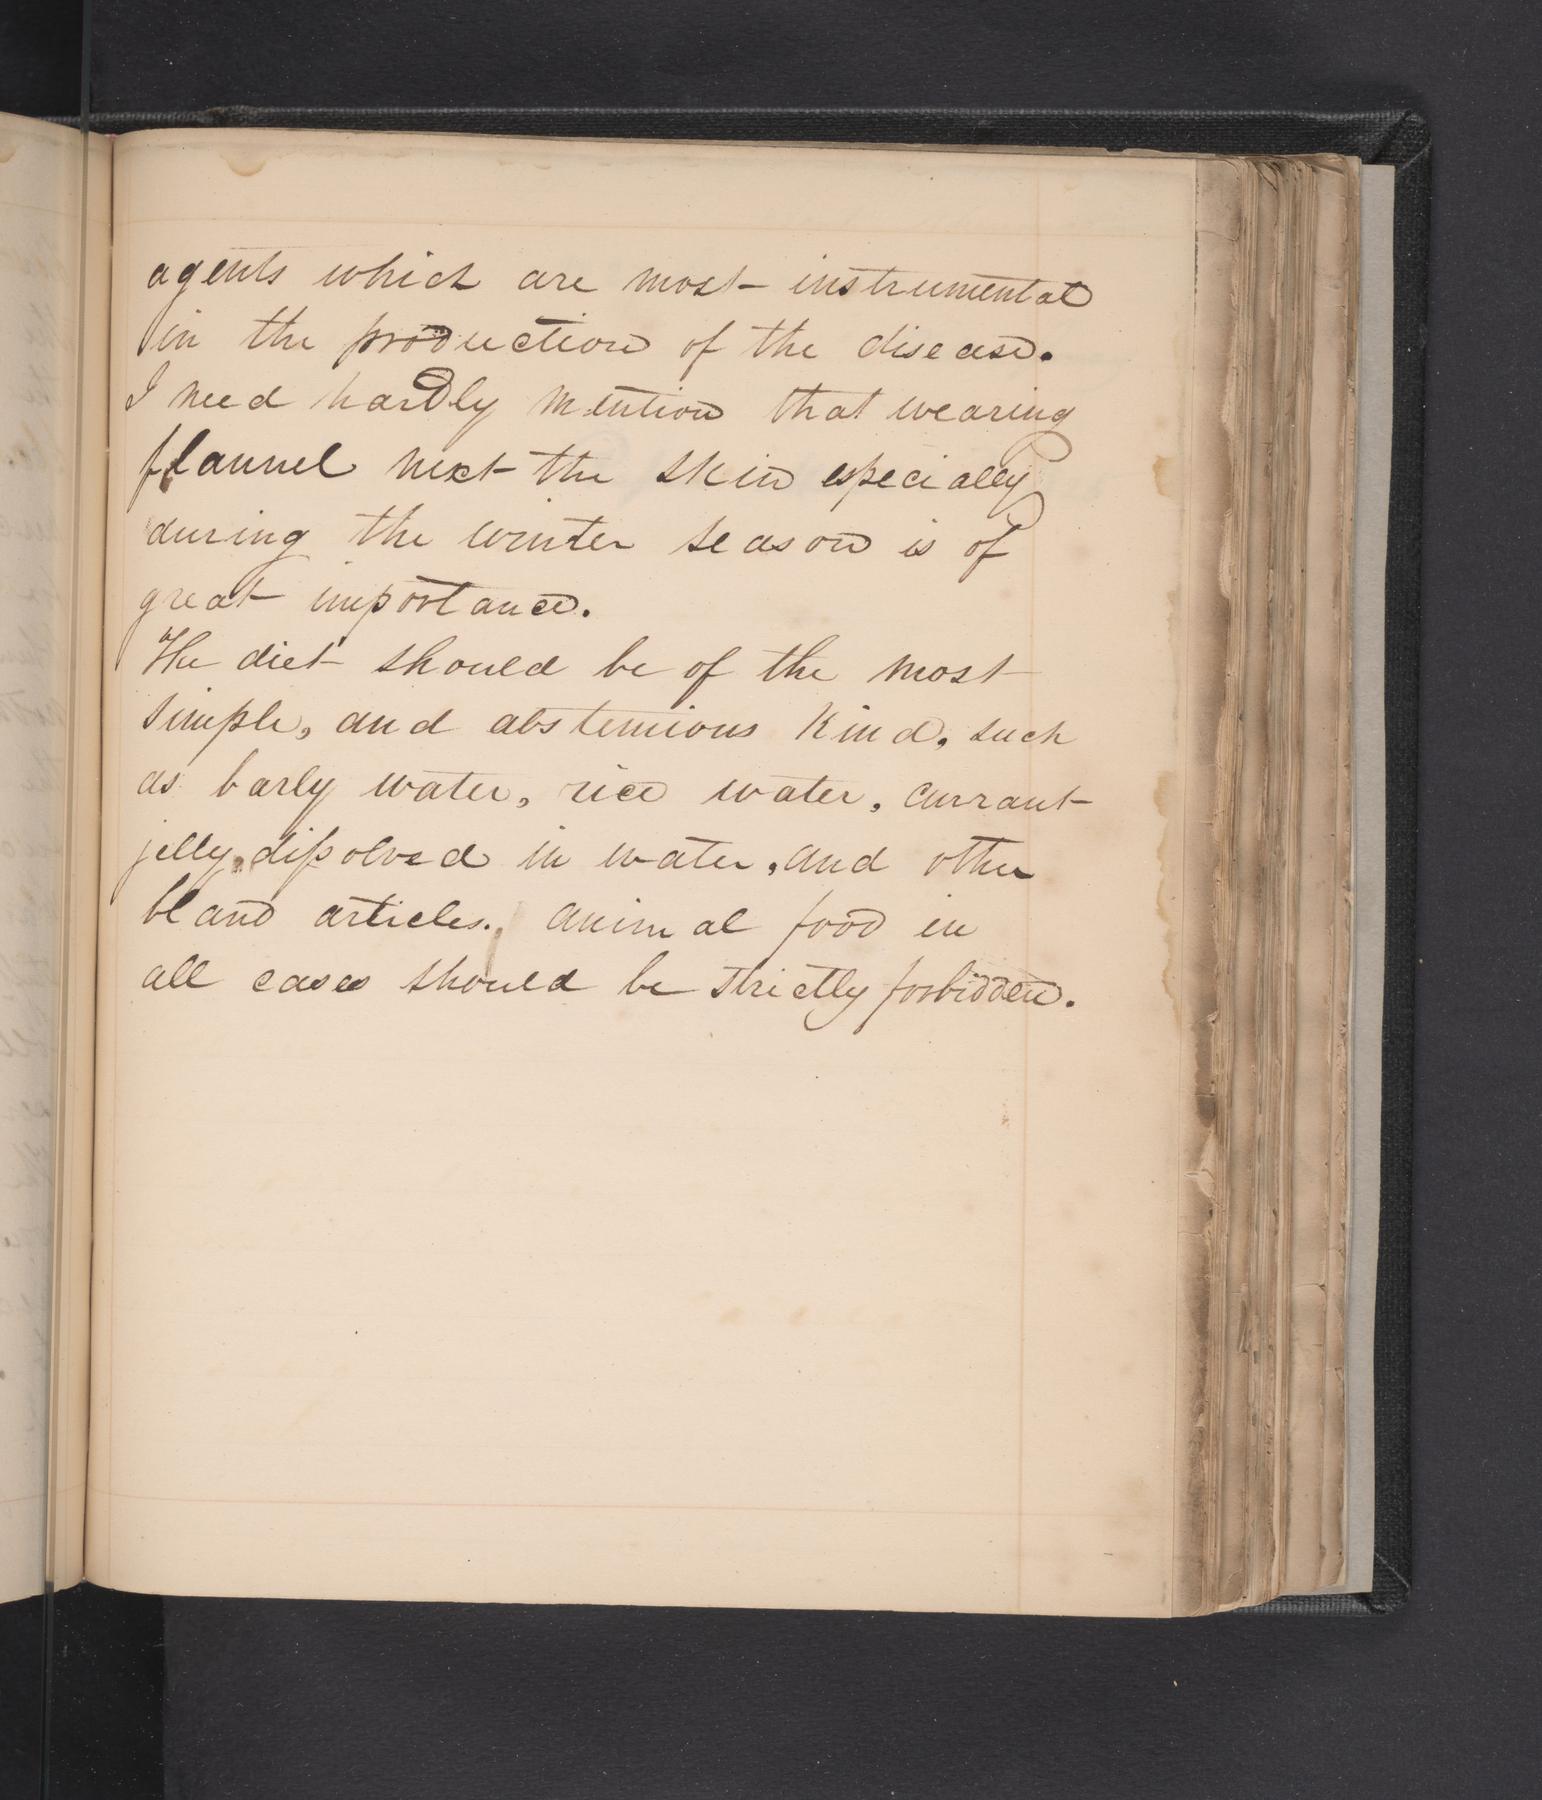 agents which are most instrumental
in the production of the disease.
I need hardly mention that wearing
flannel next the skin especially
during the winter season is of
great importance.
The diet should be of the most
simple, and abstemious kind, such
as barly water, rice water, currant
jelly, dissolved in water, and other
bland articles. animal food in
all cases should be strictly forbidden.